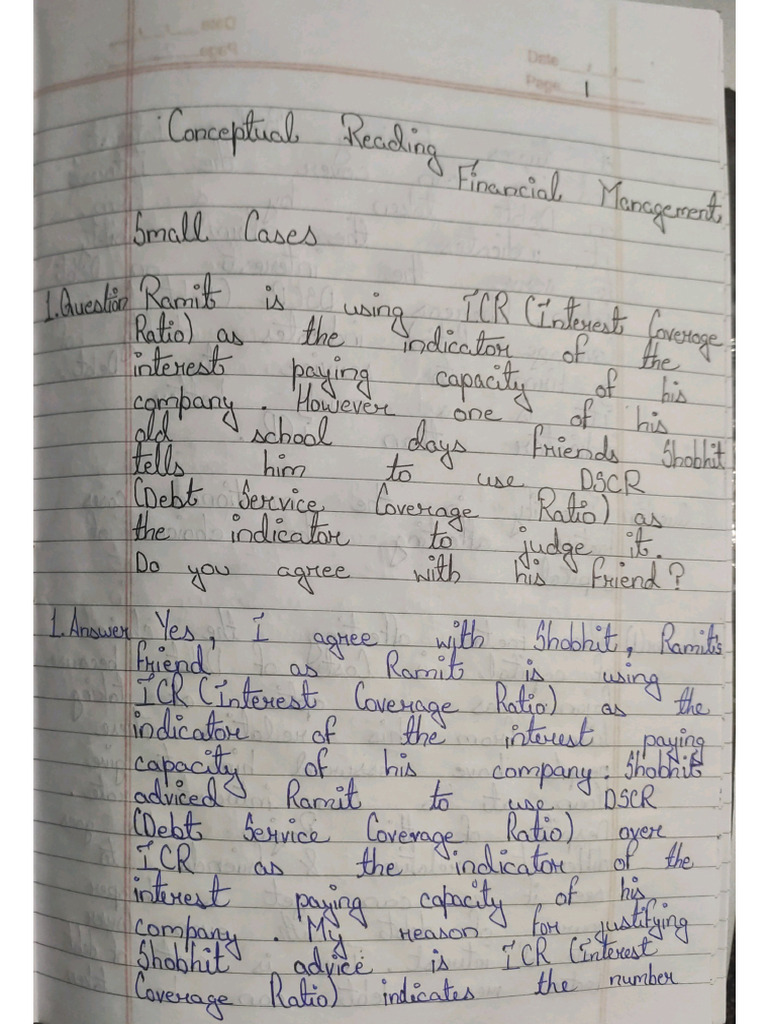 Date
Page 1
Conceptual Reading
Financial Management
Small Cases
1.Question Ramit is using ICR (Interest Coverage
Ratio) as the indicator of the
interest paying capacity of his
company. However one of his
old school days friends Shobhit
tells him to use DSCR
(Debt Service Coverage Ratio) as
the indicator to judge it.
Do you agree with his friend?
1.Answer Yes, I agree with Shobhit, Ramit's
friend as Ramit is using
ICR (Interest Coverage Ratio) as the
indicator of the interest paying
capacity of his company. Shobhit
adviced Ramit to use DSCR
(Debt Service Coverage Ratio) over
ICR as the indicator of the
interest paying capacity of his
company. My reason for justifying
Shobhit advice is ICR (Interest
Coverage Ratio) indicates the number